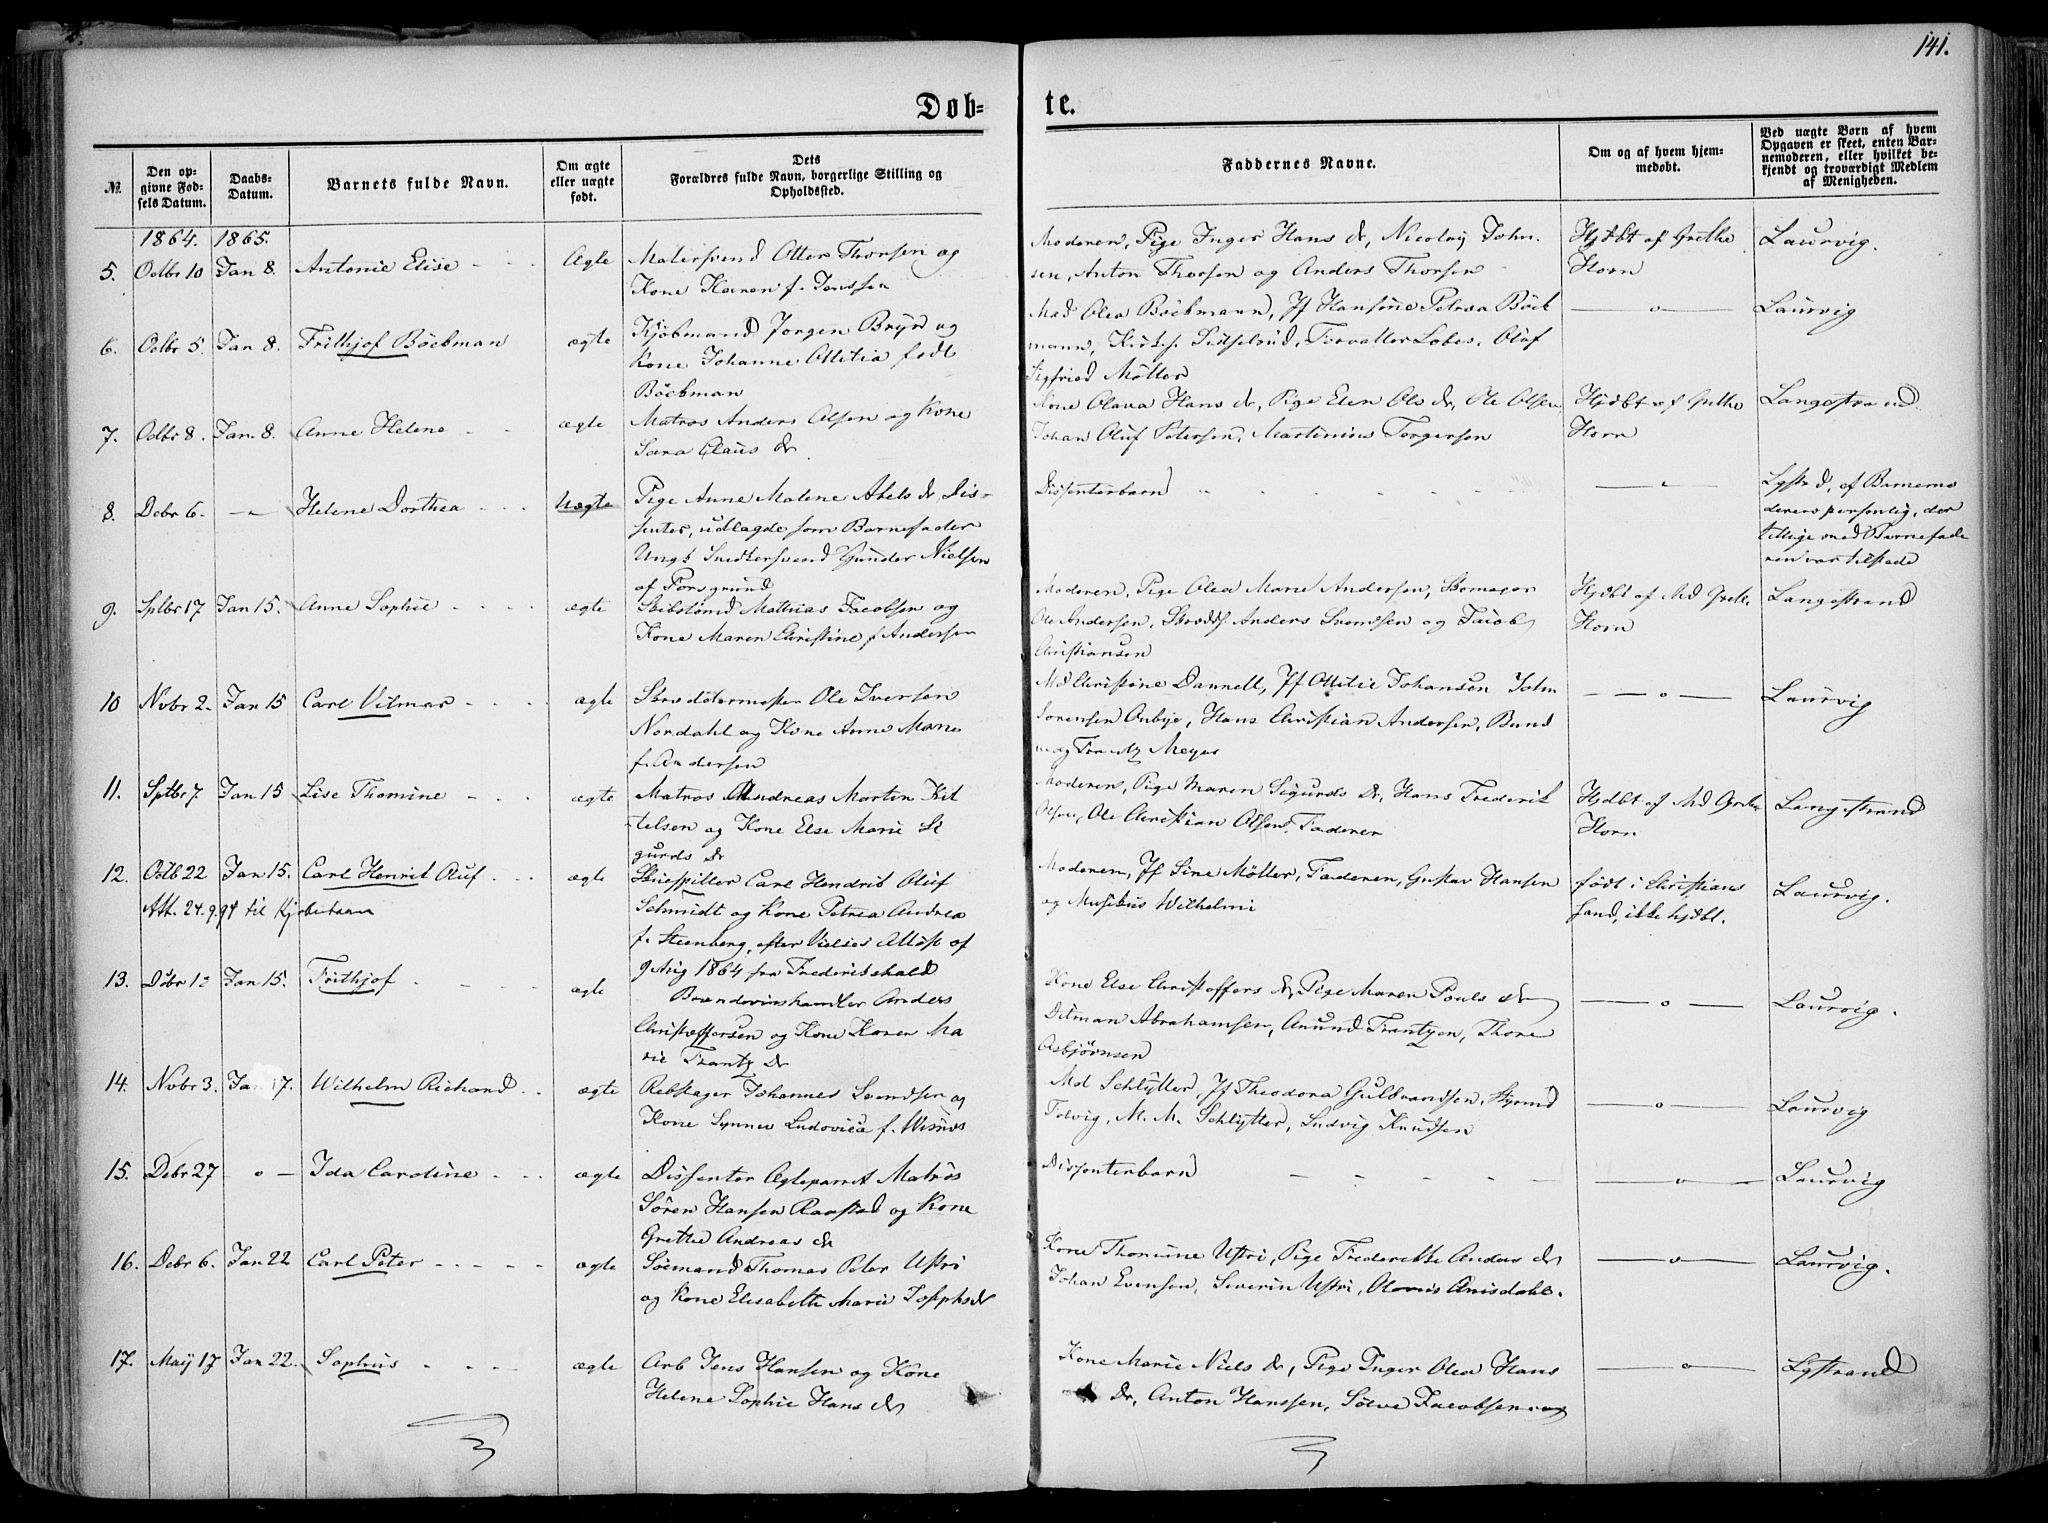 141.
Døb-
te.
№.
Den op-
givne Fød-
sels Datum.
Daabs-
Datum.
Barnets fulde Navn.
Om ægte
eller uægte
født.
Dets
Forældres fulde Navn, borgerlige Stilling og
Opholdssted.
Faddernes Navne.
Om og af hvem hjem-
medøbt.
Ved uægte Børn af hvem
Opgaven er skeet, enten Bar-
nemoderen, eller hvilket be-
kjendt og troværdigt Medlem
af Menigheden.
1864. 1865.
5. Octbr 10 Jan 8. Antonie Elise - - Ægte
Malersvend Otter Thorsen og
Kone Karen f. Jenssen
Moderen, Pige Inger Hans dr, Nicolay John-
sen, Anton Thorsen og Anders Thorsen
Hjdbt af Grethe
Horn
Laurvig.
6. Octbr 5. Jan 8. Frithjof Böckman ægte
Kjøbmand Jørgen Bryn og
Kone Johanne Ottitia født
Böckman
Mad Olea Böckmann, Jf Hansine Petrea Böck
mann, Forvalter Lobes, Oluf
Sigfried Møller
— o —
Laurvig
7. Octbr 8. Jan. 8. Anne Helene - - ægte
Matros Anders Olsen og Kone
Sara Claus dr
Kone Olava Hans dr, Pige Elen Ols dr, Ole Olsen,
Johan Oluf Petersen, Martinius Torgersen
Hjdbt af Grethe
Horn
Langestrand
8. Debr 6. — Helene Dorthea - - - Uægte
Pige Anne Malene Abels dr, Dis-
senter, udlagde som Barnefader
Ungk Snedkersvend Gunder Nielsen
af Porsgrund
Dissenterbarn
Lgstrd, af Barnemo
deren personlig, der
tillige med Barnefade
ren var tilstede
9. Sptbr 17 Jan 15. Anne Sophie - - - - ægte
Skibstømd Mathias Jacobsen og
Kone Maren Christine f. Andersen
Moderen, Pige Olea Marie Andersen, Skomager
Ole Andersen, Skrædds Anders Svendsen og Jacob
Christiansen
Hjdbt af Md Grethe
Horn
Langestrand
10 Novbr 2. Jan 15 Carl Vilmar - - - - ægte
Skræddermester Ole Iversen
Nordahl og Kone Anne Marie
f. Andersen
Md Christine Dannell, Jf Ottilie Johansen John
Sørensen Aubye, Hans Christian Andersen, Bund
mag Frantz Meyer
— o —
Laurvig
11. Sptbr 7. Jan 15 Lise Thomine - - - ægte
Matros Andreas Martin Kit
telsen og Kone Else Marie Si
gurds dr
Moderen, Pige Maren Sigurds dr, Hans Frederik
Olsen, Ole Christian Olsen, Faderen
Hjdbt af Md Grethe
Horn
Langestrand
12. Octb 22 Jan 15. Carl Henrik Oluf - - - ægte
Att. 24.9.94 til Kjøbenhavn
Skuespiller Carl Hendrik Oluf
Schmidt og Kone Petrea Andrea
f. Steenberg, efter Vielses Attest af
9 Aug 1864 fra Frederikshald
Moderen, Jf Sine Møller, Faderen, Gustav Hansen
og Musikus Wilhelmi
født i Christians
sand, ikke hjdbt.
Laurvig.
13. Debr 12 Jan 15. Frithjof - - - - ægte
Brændevinshandler Anders
Christoffersen og Kone Karen Ma
rie Frantz dr
Kone Else Christoffers dr, Pige Maren Pouls dr
Ditman Abrahamsen, Anund Frantzen, Thore
Asbjørnsen
— o —
Laurvig.
14. Novbr 3. Jan 17. Wilhelm Richard - - ægte
Rebslager Johannes Svendsen og
Kone Synnev Ludovica f.
Md Schlytter, Jf Theodora Gulbrandsen,
Tolvig, M. M. Schlytter, Ludvig Knudsen
— o —
Laurvig
15. Debr 27 - o - Ida Caroline - - - ægte
Dissenter Ægteparret Matros
Søren Hansen Raastad og Kone
Grethe Andreas dr
Dissenterbarn - - - - -
— o —
Laurvig
16. Debr 6. Jan 22 Carl Peter - - - - - ægte
Sømand Thomas Peter Ustri
og Kone Elisabeth Marie Josephs dr
Kone Thomine Ustri, Pige Frederikke Anders dr
Johan Evensen, Severin Ustri,
— o —
Laurvig.
17. Maij 17 Jan 22. Sophus - - - - ægte
Arb Jens Hansen og Kone
Helene Sophie Hans dr
Kone Marie Niels dr, Pige Inger Olea Hans
dr, Anton Hanssen, Jacobsen
— o —
Lgstrand